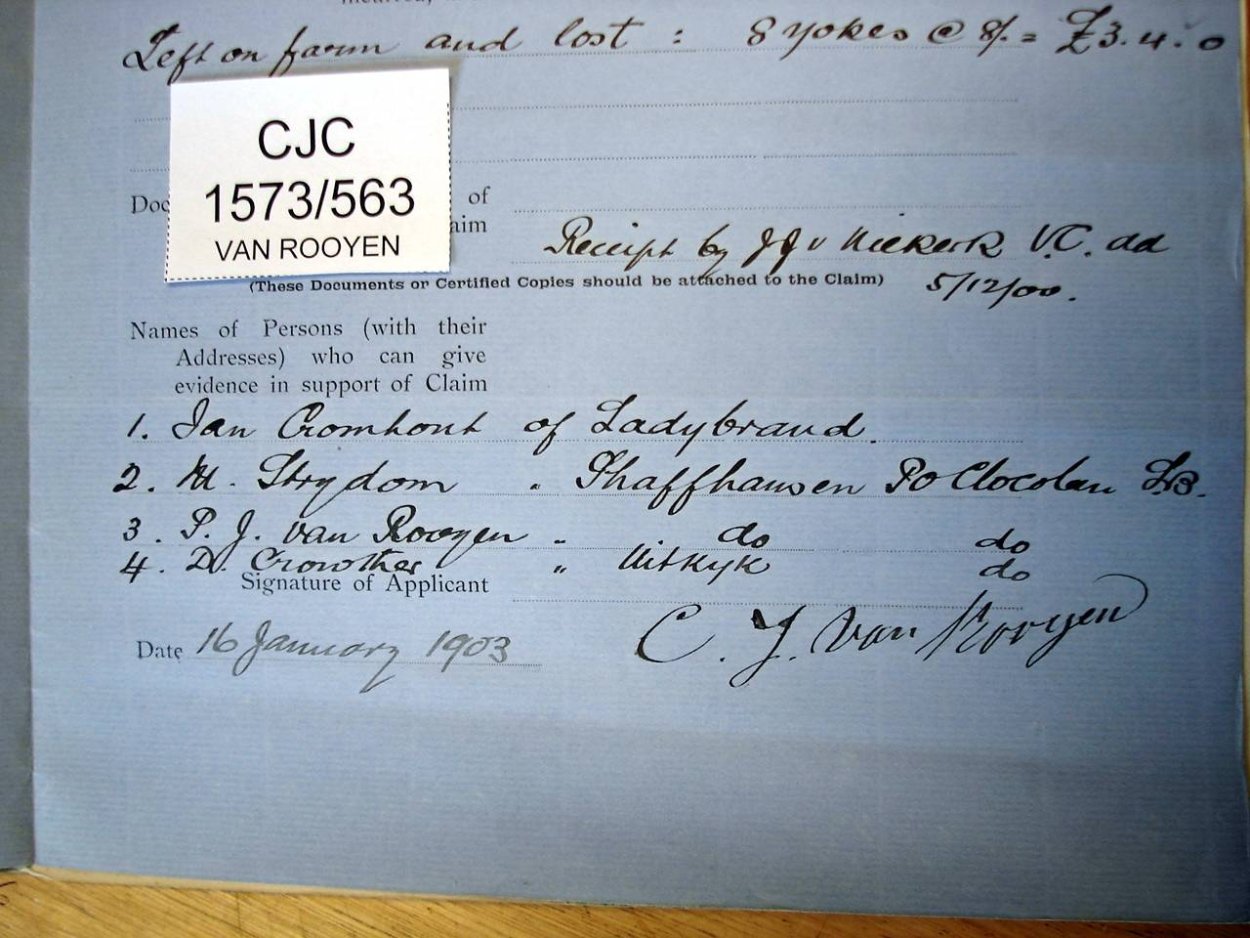 Left on farm and lost : 8 yokes @ 8/. = £3. 4. 0
CJC
1573/563
VAN ROOYEN
Doc of
aim
Receipt by J J v Niekerk V.C. dd
(These Documents or Certified Copies should be attached to the Claim) 5/12/00.
Names of Persons (with their
Addresses) who can give
evidence in support of Claim
1. Jan Cromhout of Ladybrand.
2. M. Strydom " Shaffhausen PO Clocolan LB.
3. P. J. van Rooyen " do do
4. D. Crowther " Uitkyk do
Signature of Applicant
C. J. van Rooyen
Date 16 January 1903